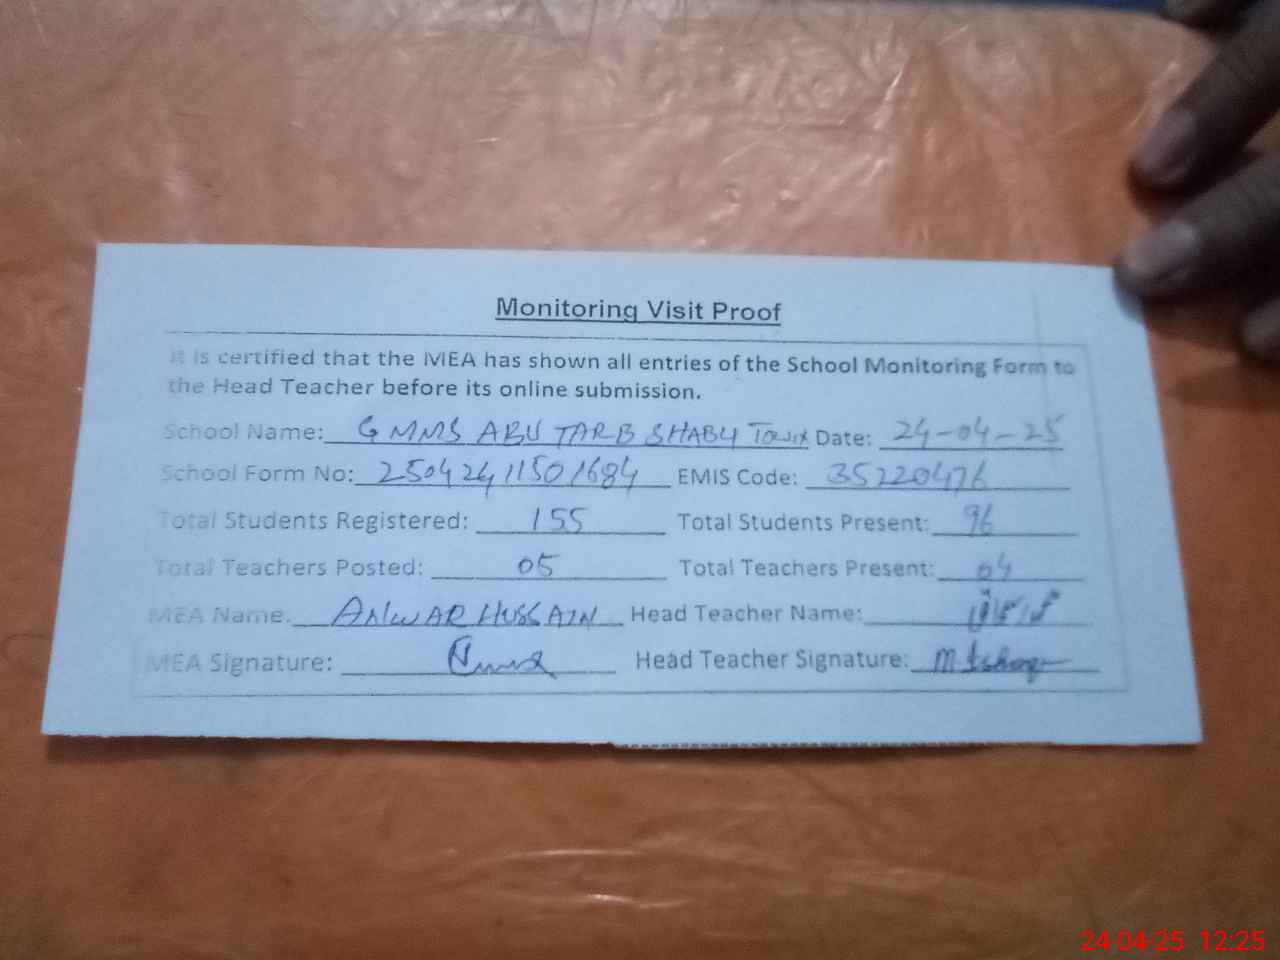 Monitoring Visit Proof
It is certified that the MEA has shown all entries of the School Monitoring Form to
the Head Teacher before its online submission.
School Name: G MMS ABU TARB SHABU Town Date: 24-04-25
School Form No: 25042411501684 EMIS Code: 35220476
Total Students Registered: 155 Total Students Present: 96
Total Teachers Posted: 05 Total Teachers Present: 04
MEA Name: ANWAR HUSSAIN Head Teacher Name:
MEA Signature: Head Teacher Signature:
24-04-25 12:25